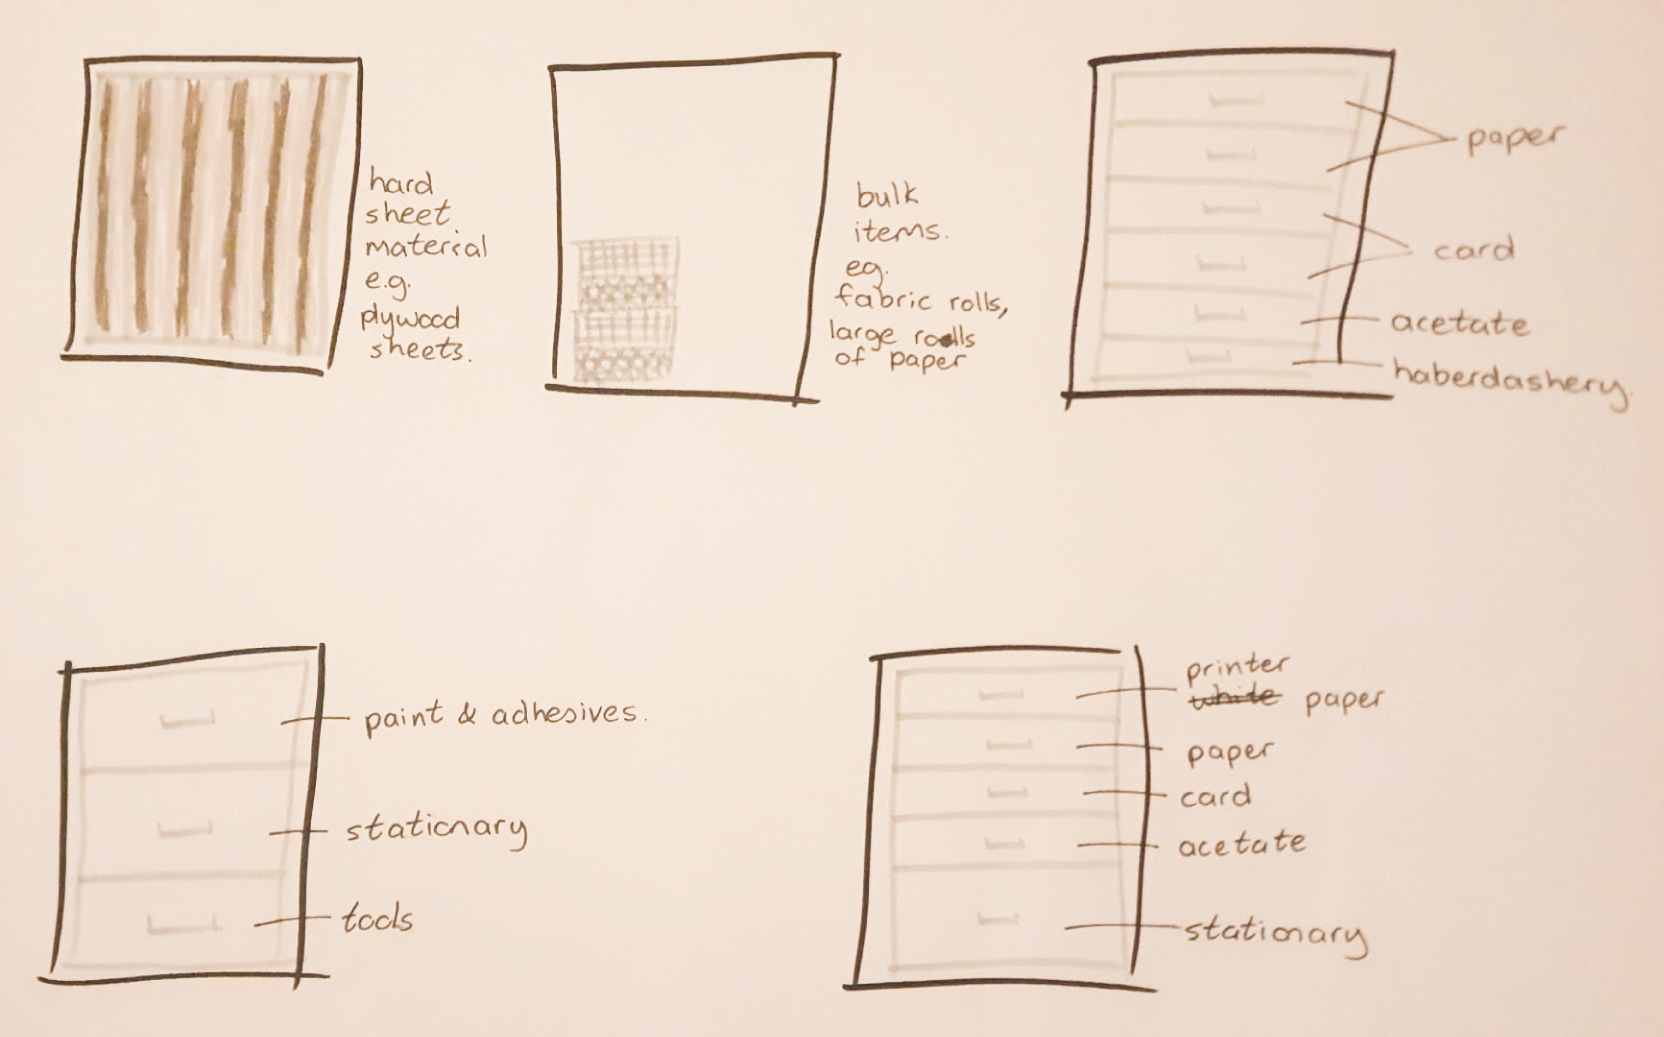 hard
sheet
material
e.g.
plywood
sheets.
bulk
items.
eg.
fabric rolls,
large rolls
of paper
paper
card
acetate
haberdashery.
paint & adhesives.
stationary
tools
printer
white paper
paper
card
acetate
stationary